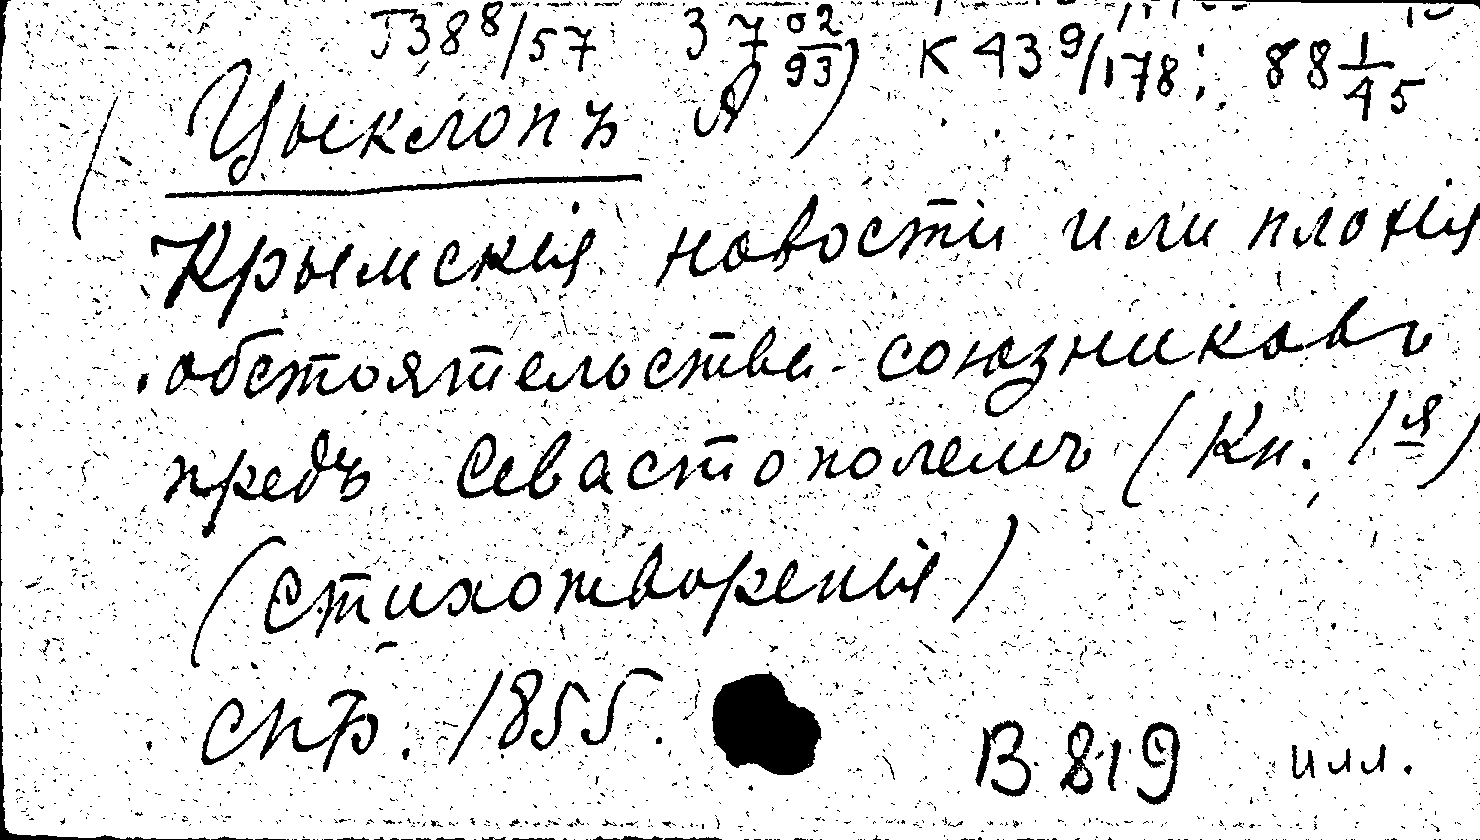 J38⁸/57 3 7 02/93 К 43⁹/178; 88 1/45
(Цыклопъ А)
Крымскія новости или плохія
обстоятельства союзниковъ
предъ Севастополемъ (Кн. 1я)
(стихотворенія)
спб. 1855.
В 819 илл.